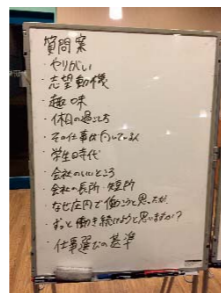 質問案
・やりがい
・志望動機
・趣味
・休日の過ごし方
・学生時代
・会社のいいところ
・会社の長所・短所
・なぜ庄内で働こうと思ったか
・ずっと働き続けようと思いますか?
・仕事選びの基準